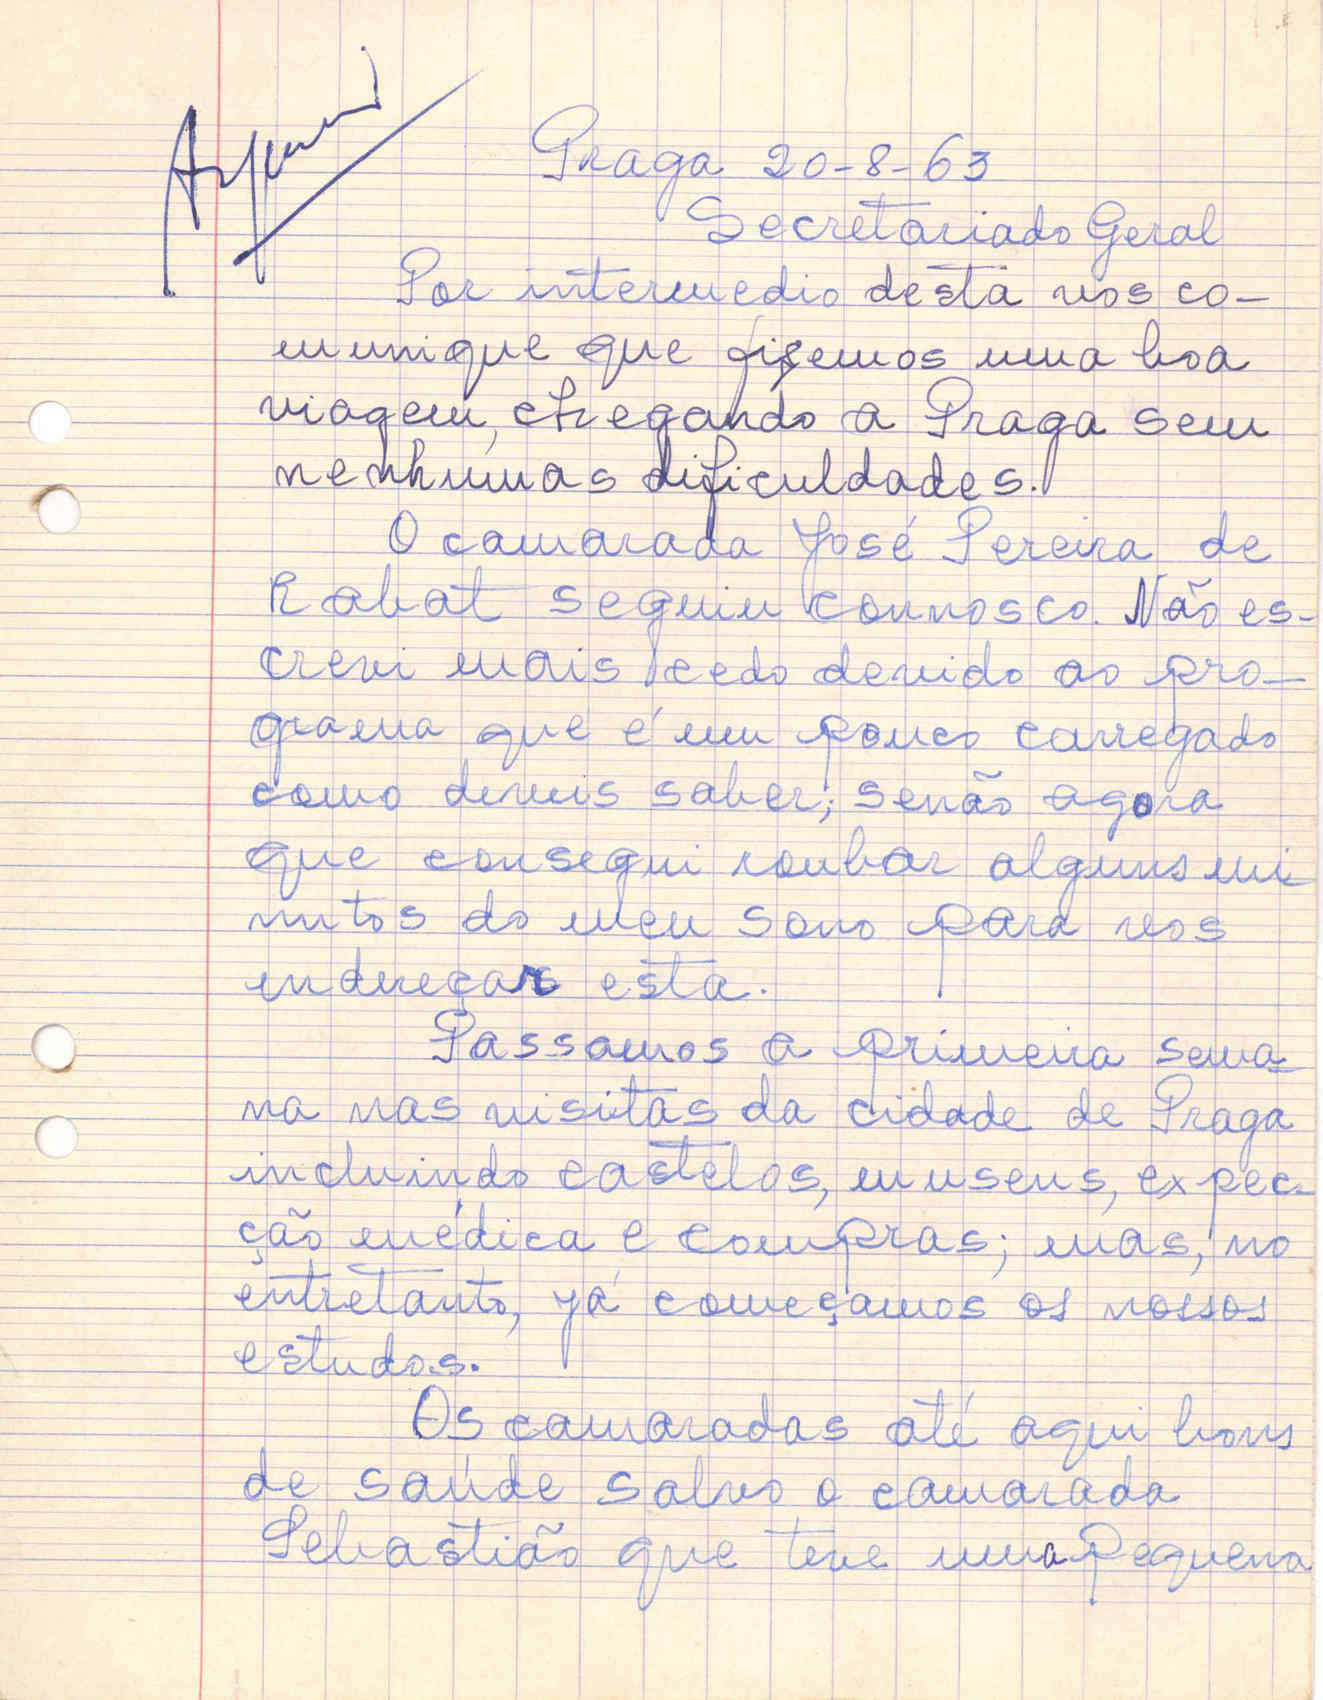 Praga 20-8-63
Secretariado Geral
Por intermedio desta vos co-
munique que fizemos uma boa
viagem, chegando a Praga sem
nenhumas dificuldades.
O camarada José Pereira de
Rabat seguiu connosco. Não es-
crevi mais cedo devido ao pro-
grama que é um pouco carregado
como deveis saber; senão agora
que consegui roubar alguns mi
nutos do meu sono para vos
endereçar esta.
Passamos a primeira sema-
na nas visitas da cidade de Praga
incluindo castelos, museus, expec-
ção médica e compras; mas, no
entretanto, já começamos os nossos
estudos.
Os camaradas até aqui bons
de saúde salvo o camarada
Sebastião que teve uma pequena